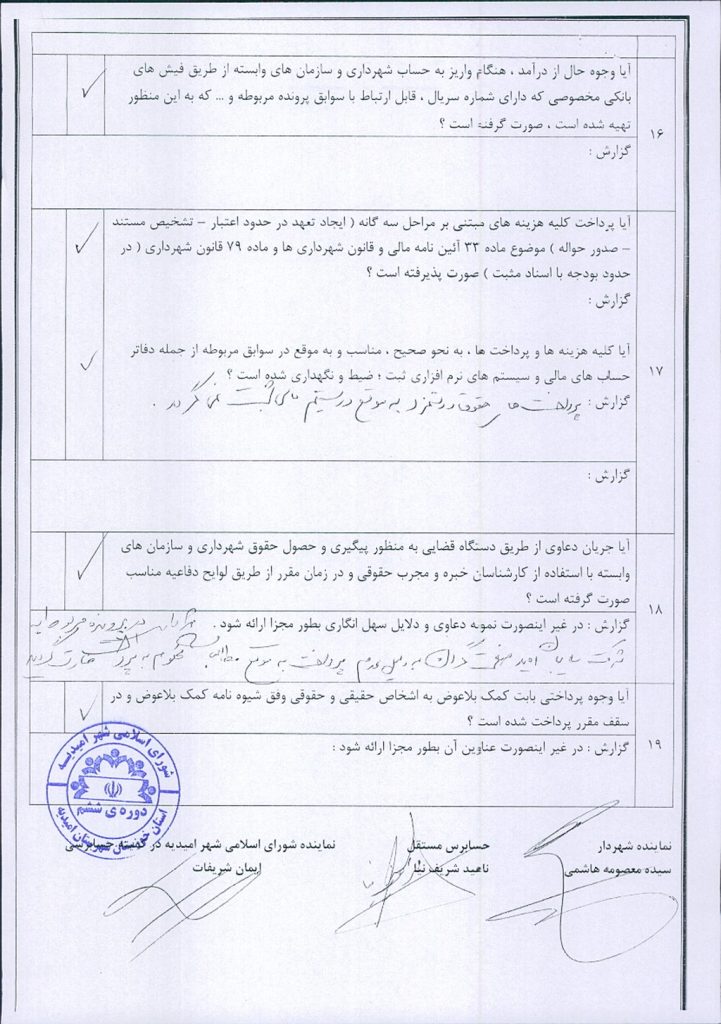 ۱۶
آیا وجوه حال از درآمد ، هنگام واریز به حساب شهرداری و سازمان های وابسته از طریق فیش های
بانکی مخصوصی که دارای شماره سریال ، قابل ارتباط با سوابق پرونده مربوطه و ... که به این منظور
تهیه شده است ، صورت گرفته است ؟
گزارش :
۱۷
آیا پرداخت کلیه هزینه های مبتنی بر مراحل سه گانه ( ایجاد تعهد در حدود اعتبار – تشخیص مستند
– صدور حواله ) موضوع ماده ۳۳ آئین نامه مالی و قانون شهرداری ها و ماده ۷۹ قانون شهرداری ( در
حدود بودجه با اسناد مثبت ) صورت پذیرفته است ؟
گزارش :
آیا کلیه هزینه ها و پرداخت ها ، به نحو صحیح ، مناسب و به موقع در سوابق مربوطه از جمله دفاتر
حساب های مالی و سیستم های نرم افزاری ثبت ؛ ضبط و نگهداری شده است ؟
گزارش : پرداخت های حقوق و دستمزد به موقع در سیستم مالی ثبت نمی گردد .
گزارش :
۱۸
آیا جریان دعاوی از طریق دستگاه قضایی به منظور پیگیری و حصول حقوق شهرداری و سازمان های
وابسته با استفاده از کارشناسان خبره و مجرب حقوقی و در زمان مقرر از طریق لوایح دفاعیه مناسب
صورت گرفته است ؟
گزارش : در غیر اینصورت نمونه دعاوی و دلایل سهل انگاری بطور مجزا ارائه شود .
شرکت امید به دلیل عدم پرداخت به موقع مطالبات محکوم به پرداخت خسارت گردید
۱۹
آیا وجوه پرداختی بابت کمک بلاعوض به اشخاص حقیقی و حقوقی وفق شیوه نامه کمک بلاعوض و در
سقف مقرر پرداخت شده است ؟
گزارش : در غیر اینصورت عناوین آن بطور مجزا ارائه شود :
شورای اسلامی شهر امیدیه
دوره ی ششم
استان خوزستان شهرستان امیدیه
نماینده شهردار
سیده معصومه هاشمی
حسابرس مستقل
ناهید شریف نیا
نماینده شورای اسلامی شهر امیدیه در کمیته حسابرسی
ایمان شریفات